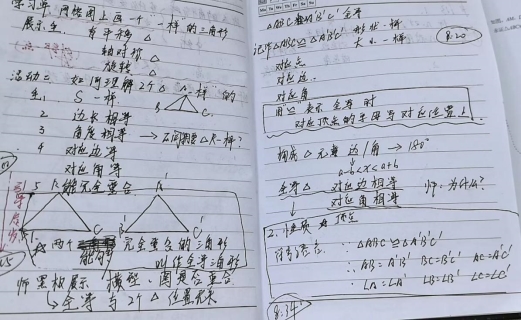 学习单：网格图上画一个一样的三角形
展示：生 有平移 △
轴对称 △
旋转 △
活动二 如何理解2个△一样的
生1 S一样
2 边长相等
3 角度相等 → 不同角度△不一样?
4 对应边等
对应角等
15 能完全重合
A A'
B C B' C'
两个能够完全重合的三角形
叫作全等三角形
师黑板展示 模型、图 重合
→ 全等与2个△位置无关
△ABC和A'B'C'全等
记作△ABC≌△A'B'C' 形状一样
大小一样
8:20
对应点
对应边
对应角
用"≌"表示全等时
对应顶点的字母写对应位置上
构成△元素 边/角 → 180°
a-b<x<a+b
全等△ 对应边相等 师:为什么?
对应角相等
2. 性质
符号语言: ∵△ABC≌△A'B'C'
∴AB=A'B' BC=B'C' AC=A'C'
∠A=∠A' ∠B=∠B' ∠C=∠C'
8:34